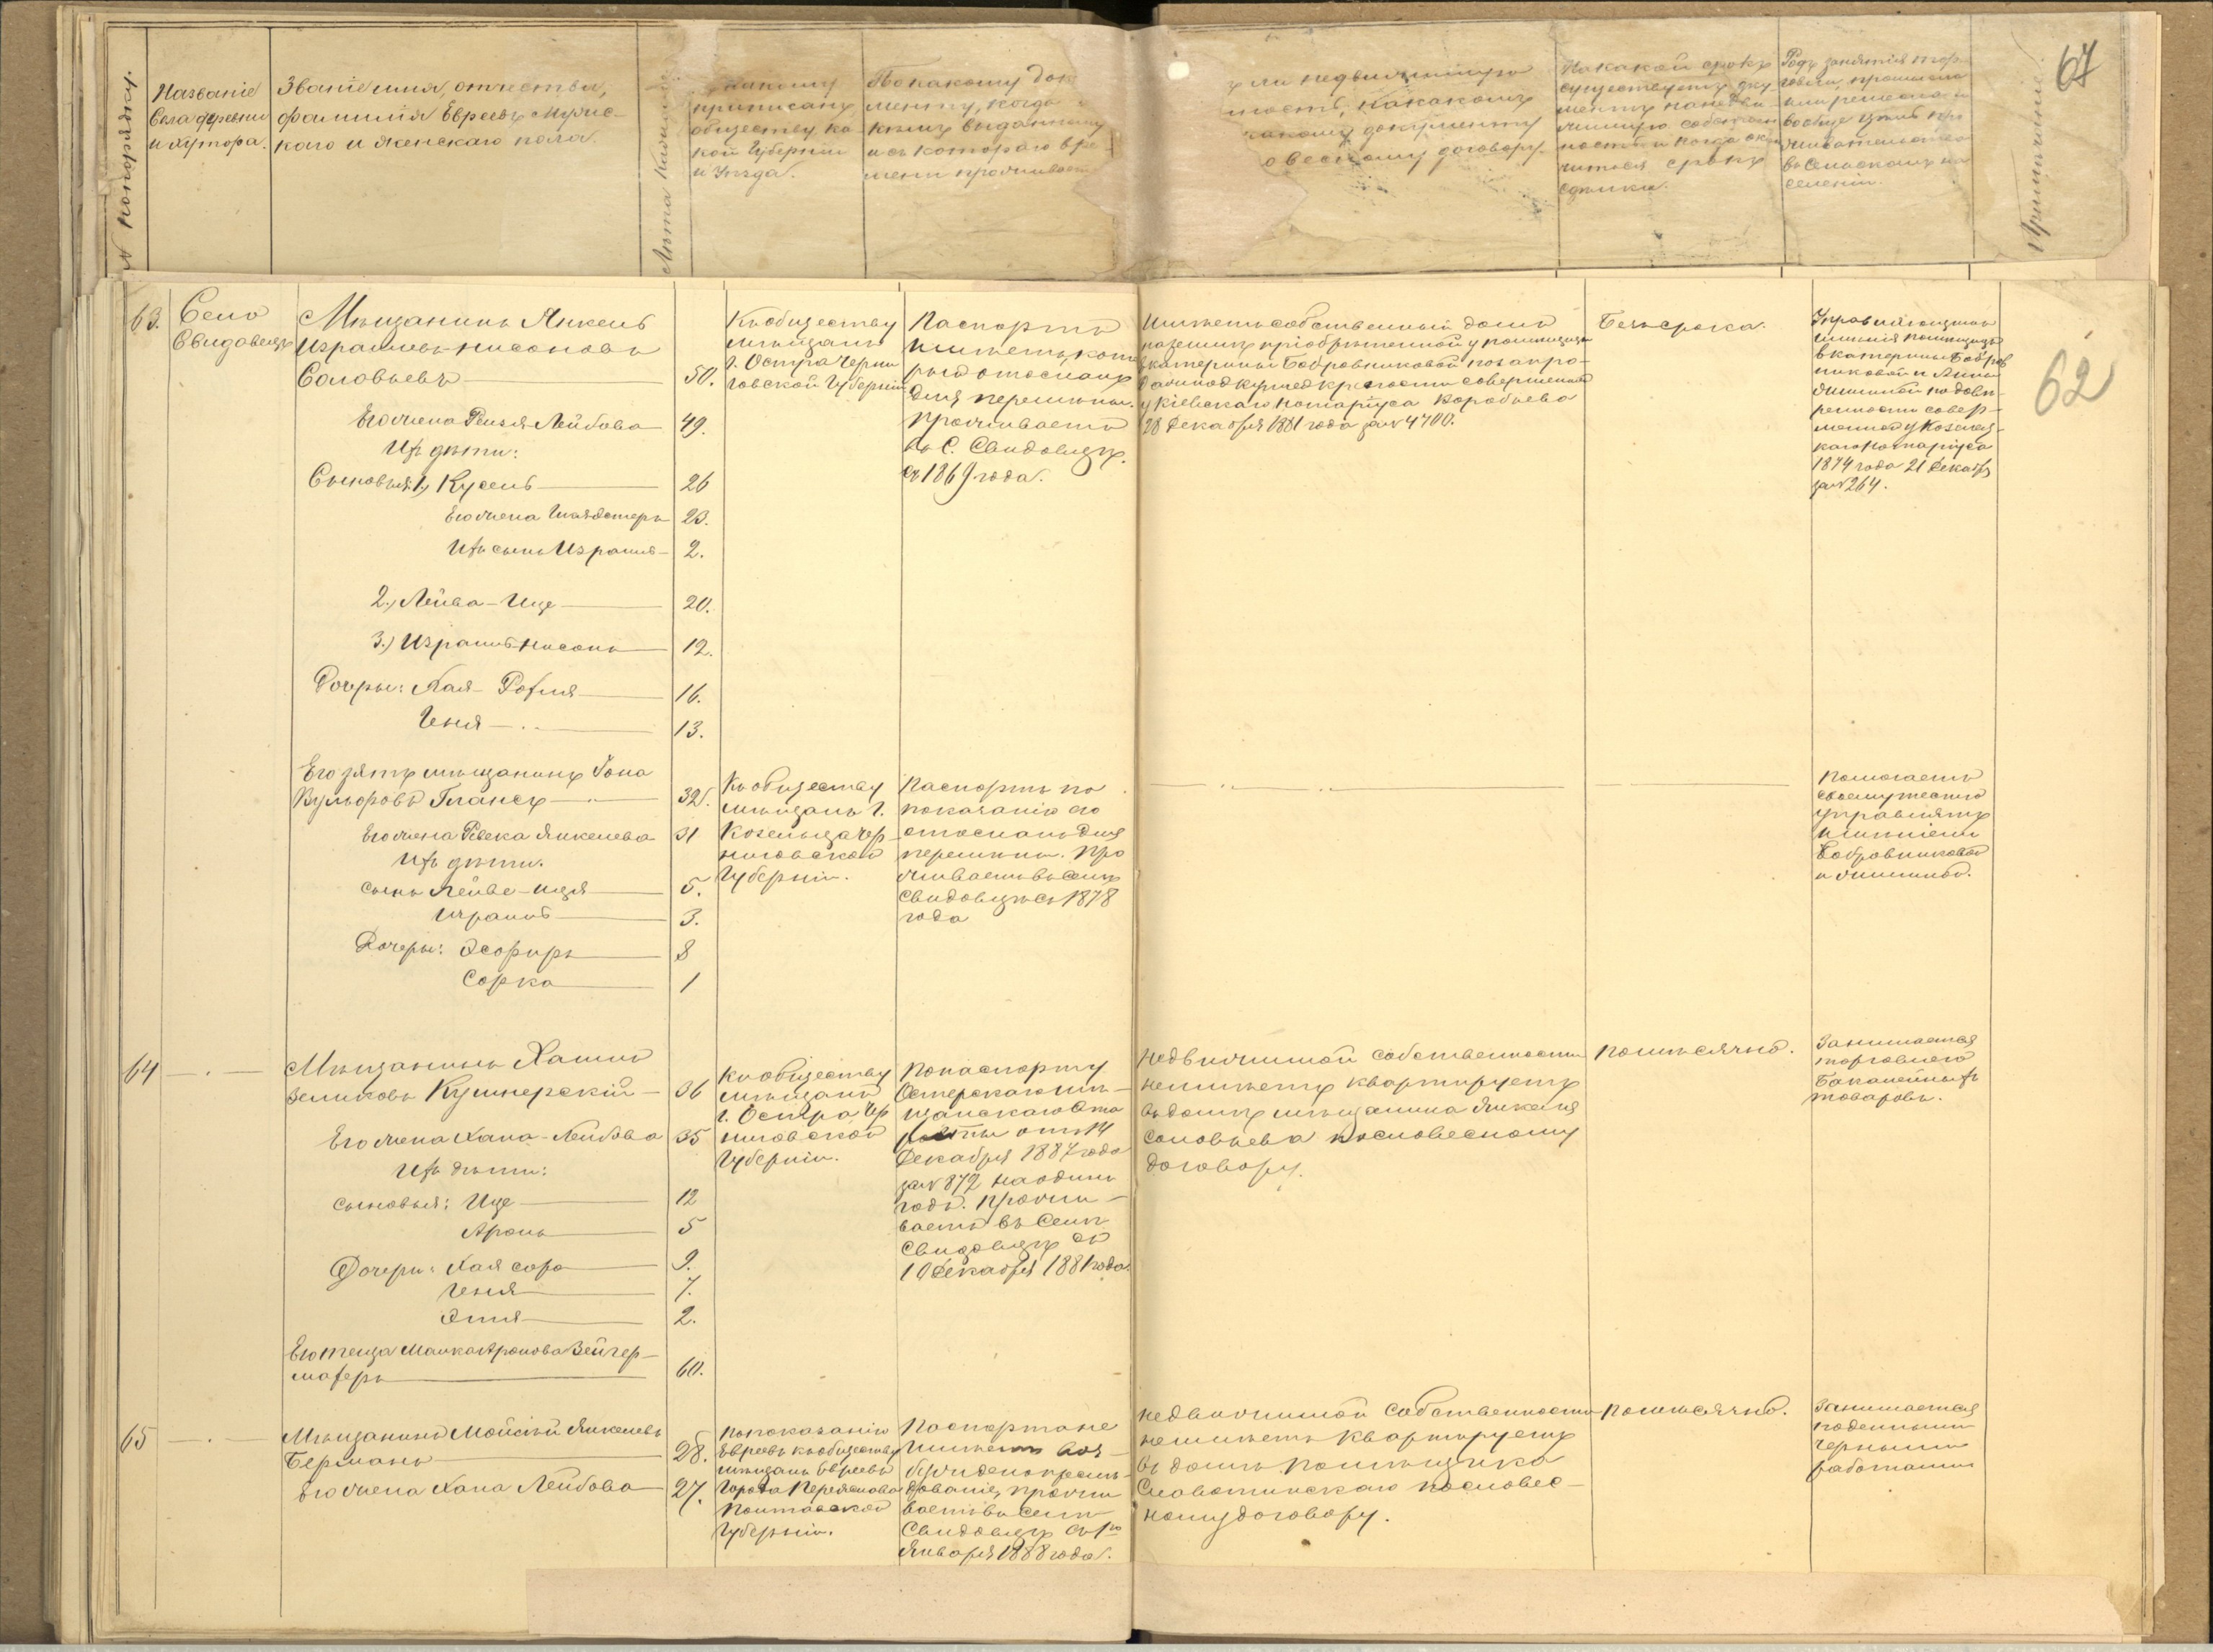 № по порядку.
Названіе
Села деревни
и хутора.
Званіе имя, отчество,
фамилія Евреевъ Мужес-
каго и женскаго пола.
Лѣта
какому
приписанъ
обществу, ка
кой Губерніи
и Уѣзда.
По какому док
менту, когда
кѣмъ выданному
и съ котораго вре
мени проживаетъ
ли недвижимую
ность, по какому
какому документу
словесному договору.
На какой срокъ
существуетъ доку
ментъ на недви-
жимую собствен
ность и когда окон
чится срокъ
Родъ занятія тор-
говли, промысла
или ремесла и
вообще цѣль про
живательства
въ Сельскомъ на
селеніи.
Примѣчаніе.
67
62
63.
Село
Свидовецъ
Мѣщанинъ Янкель
Израилевъ-Нисоновъ
Соловьевъ
50.
Его жена Рейзя Лейбова
49.
Ихъ дѣти:
Сыновья: 1) Кусель
26
Его жена Шая Эстеръ
23.
Ихъ сынъ Израиль
2.
2.) Лейба-Ице
20.
3.) Израиль Нисонъ
12.
Дочеры: Хая-Рохля
16.
Геня
13.
Къ обществу
мѣщанъ
г. Остра Черни
говской Губерніи
Паспортъ
имѣетъ, кото
рый отосланъ
для перемѣны.
Проживаетъ
въ С. Свидовцѣ.
съ 1869 года.
Имѣетъ собственный домъ
на землѣ пріобрѣтенной у помѣщицы
Екатерины Бобровниковой по запро-
дажной Купчей крѣпости совершенной
у Кіевскаго Нотаріуса Воробьева
28 Декабря 1881 года за № 4700.
Безъ срока.
Управляющій
имѣнія помѣщицъ
Екатерины Бобров
никовой и Анны
по довѣ-
ренности совер-
шенной у Козелец-
каго Нотаріуса
1874 года 21 Декабря
за № 264.
Его зять мѣщанинъ Іона
Вульфовъ Глансъ
32.
Его жена Ревека Янкелева
31
Ихъ дѣти.
сынъ Лейбе-Ицля
5.
Израиль
3.
Дочеры: Эсфирь
8
Сорка
1
Къ обществу
мѣщанъ г.
Козельца Чер-
ниговской
Губерніи.
Паспортъ по
показанію его
отосланъ для
перемѣны. Про
живаетъ въ Селѣ
Свидовцѣ съ 1878
года
Помогаетъ
своему тестю
управлять
имѣніемъ
Бобровниковой
и
64
Мѣщанинъ Хаимъ
Зеликовъ Кушнерскій
36
Его жена Хана-Лейбова
35
Ихъ дѣти:
сыновья: Ице
12
Аронъ
5
Дочери: Хая Сора
9.
Геня
7.
Этля
2.
Его теща Малка Аронова Зейгер-
махеръ
60.
Къ обществу
мѣщанъ
г. Остра Чер
ниговской
Губерніи.
По паспорту
Остерскаго мѣ-
щанскаго Ста
росты отъ 14
Декабря 1887 года
за № 872 на одинъ
годъ. Прожи-
ваетъ въ Селѣ
Свидовцѣ съ
10 Декабря 1881 года.
Недвижимой собственности
неимѣетъ квартируетъ
въ домѣ мѣщанина Янкеля
Соловьева по словесному
договору.
Помѣсячно.
Занимается
торговлею
Бакалейныхъ
товаровъ.
65
Мѣщанинъ Мойсѣй Янкелевъ
Берманъ
28.
Его жена Хана Лейбова
27.
По показанію
Евреевъ къ обществу
мѣщанъ Евреевъ
города Переяслова
Полтавской
Губерніи.
Паспорта не
имѣетъ воз-
буждено преслѣ-
дованіе, прожи
ваетъ въ Селѣ
Свидовцѣ съ 1го
Января 1888 года.
Недвижимой Собственности
неимѣетъ Квартируетъ
въ домѣ Помѣщика
Славотинскаго по словес-
ному договору.
Помѣсячно.
Занимается
поденными
черными
работами